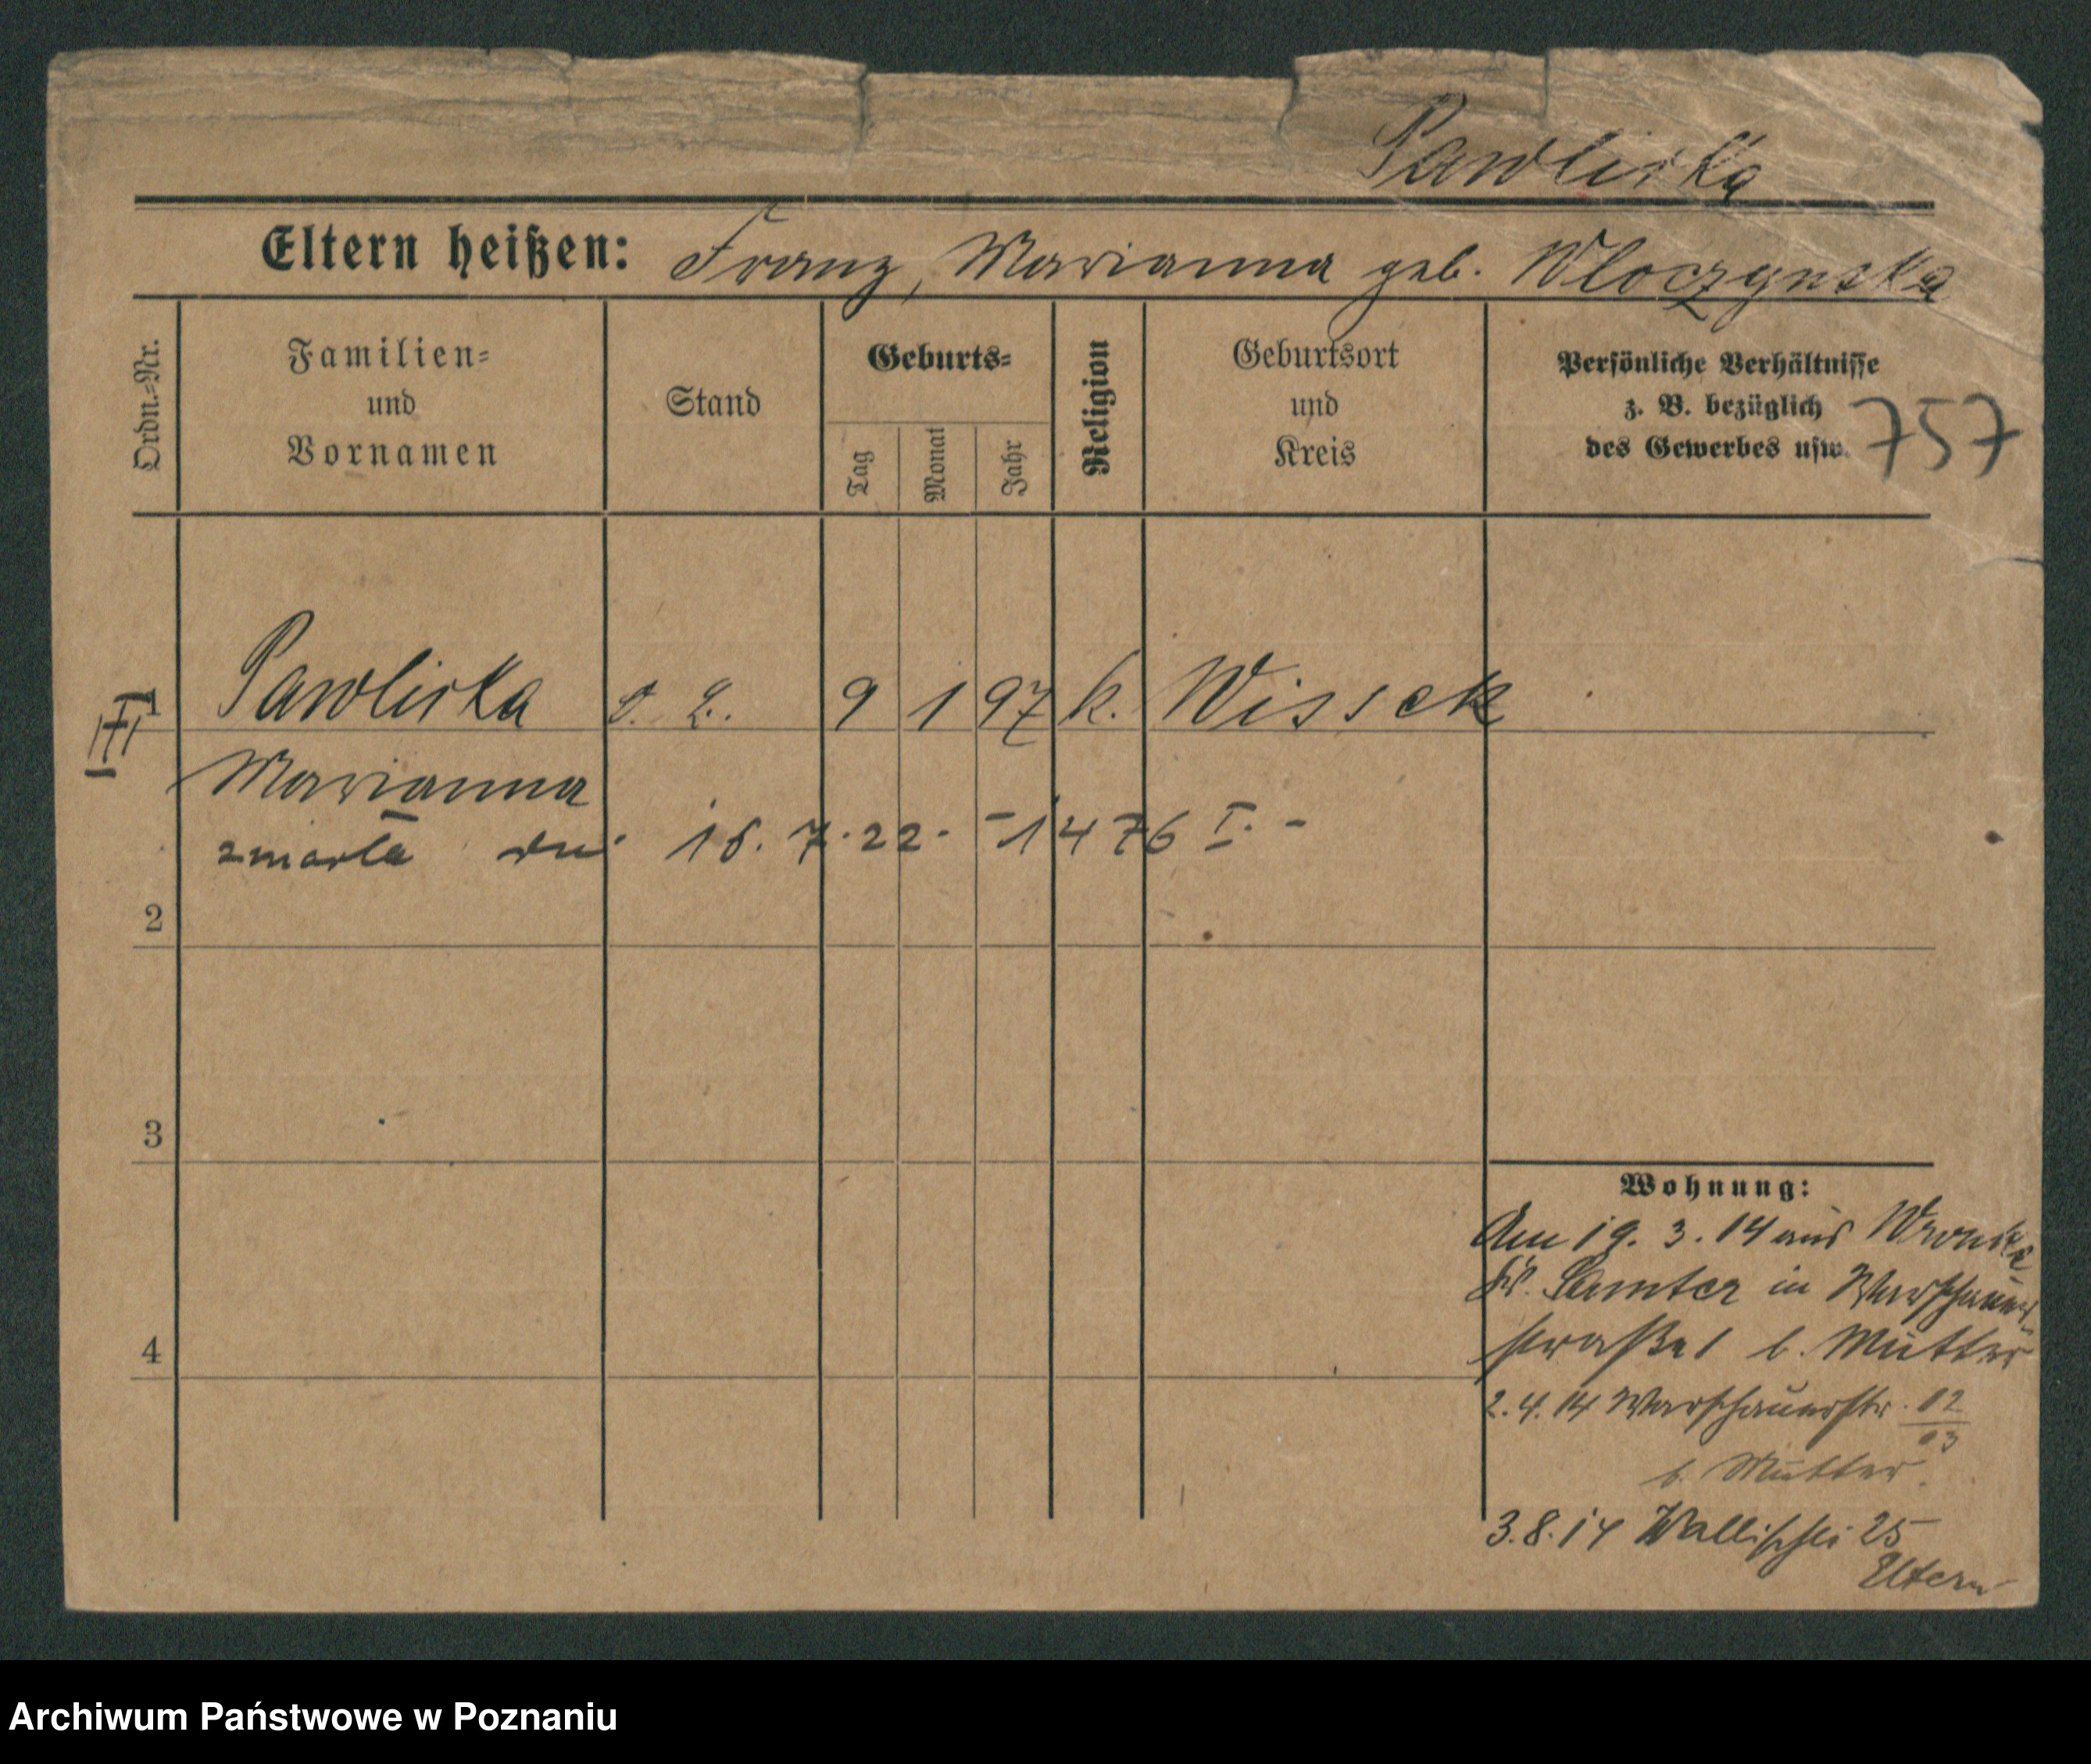 Pawlicka
Eltern heißen: Franz, Marianna geb. Wloczynska
Ordn.=Nr.
Familien=
und
Vornamen
Stand
Geburts=
Tag
Monat
Jahr
Religion
Geburtsort
und
Kreis
Persönliche Verhältnisse
z. B. bezüglich
des Gewerbes usw.
757
1 Pawlicka 9 1 97 k. Wissek
Marianna
zmarła dn. 7.22. - 1476 I. -
2
3
4
Wohnung:
Am 19. 3. 14 aus Wronke
Kr. Samter in Warschauer
straße 1 b. Mutter
2.4.14 Warschauerstr. 12
13
b. Mutter.
3.8.14 Wallischei 25
Eltern
Archiwum Państwowe w Poznaniu